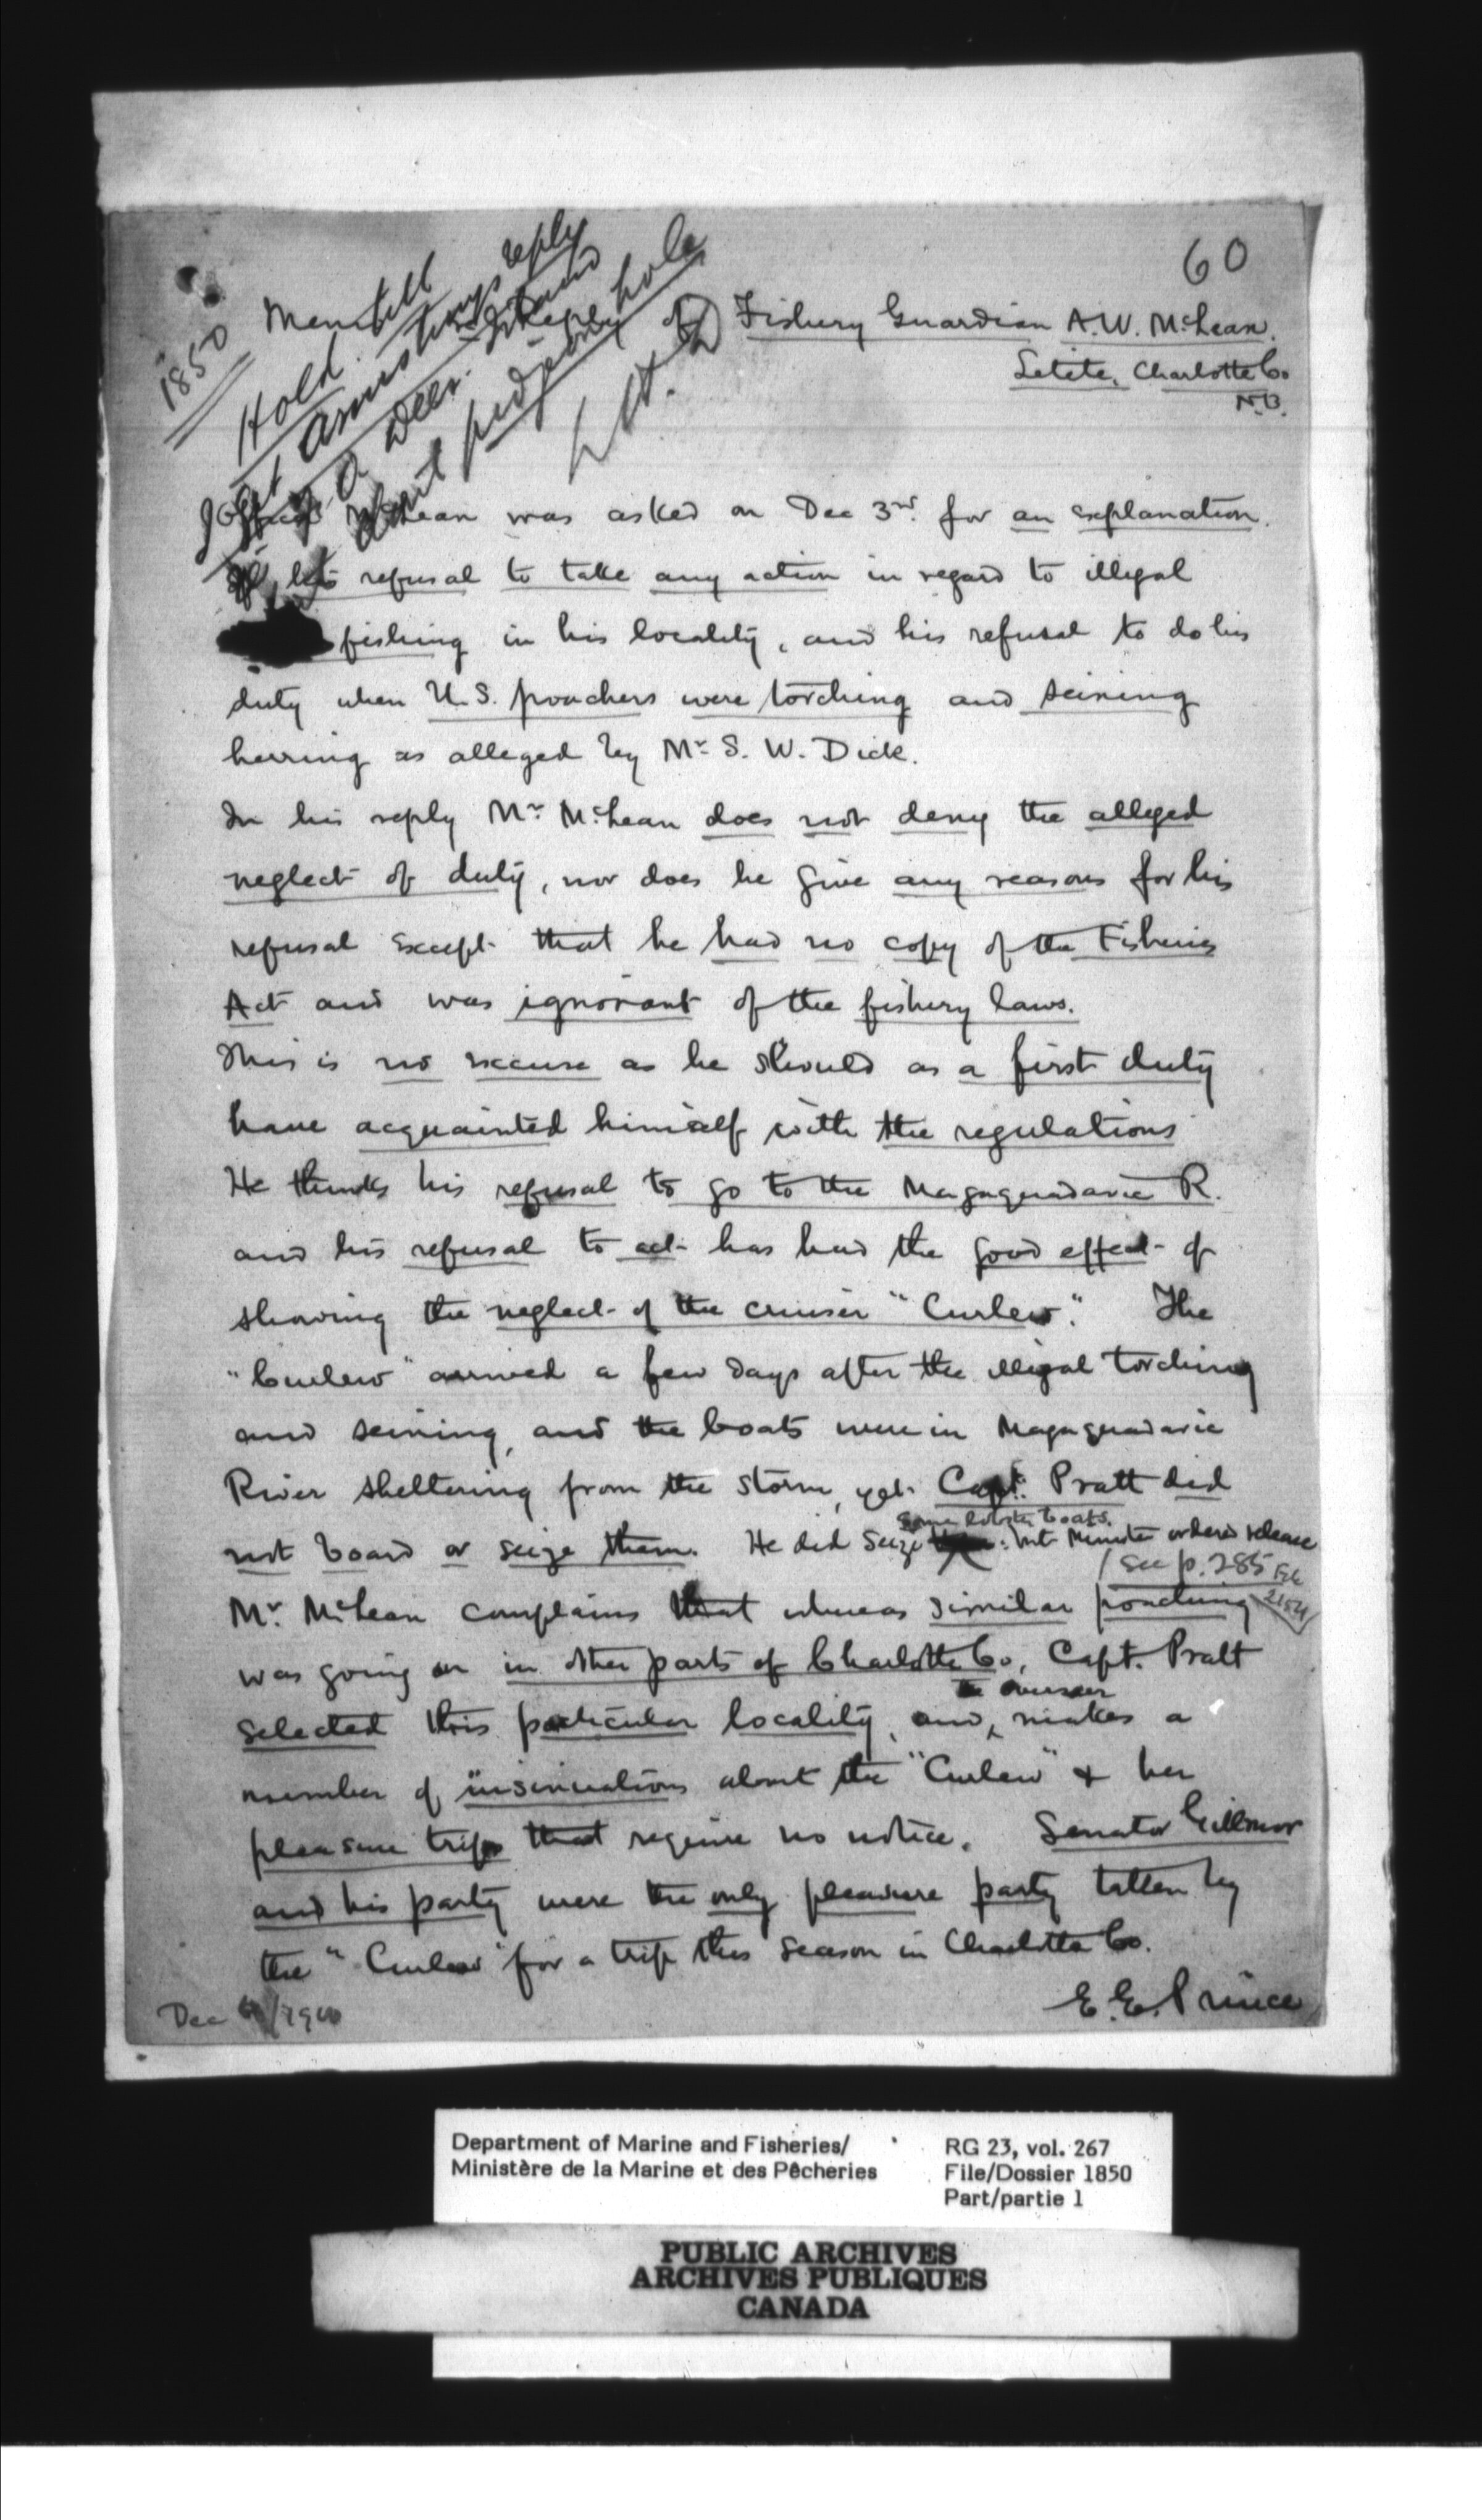 60
1850
Hold
reply of Fishery Guardian A.W. McLean.
Letete, Charlotte Co.
N.B.
McLean was asked on Dec 3rd. for an explanation.
of his refusal to take any action in regard to illegal
fishing in his locality, and his refusal to do his
duty when U.S. poachers were torching and seining
herring as alleged by Mr S. W. Dick.
In his reply Mr. McLean does not deny the alleged
neglect of duty, nor does he give any reasons for his
refusal except that he had no copy of the Fisheries
Act and was ignorant of the fishery laws.
This is no excuse as he should as a first duty
have acquainted himself with the regulations
He thinks his refusal to go to the Magaguadavic R.
and his refusal to act has had the good effect of
showing the neglect of the cruiser "Curlew". The
"Curlew" arrived a few days after the illegal torching
and seining, and the boats were in Magaguadavic
River sheltering from the storm, yet Capt. Pratt did
some lobster boats.
not board or seize them. He did seize but Minister ordered release
(see p. 285 File
Mr. McLean complains that whereas similar poaching
was going on in other parts of Charlotte Co, Capt. Pratt
selected this particular locality, and, makes a
number of insinuations about the "Curlew" & her
pleasure trips that require no notice. Senator Gillmor
and his party were the only pleasure party taken by
the "Curlew" for a trip this season in Charlotte Co.
E.E. Prince
Department of Marine and Fisheries/
Ministère de la Marine et des Pêcheries
RG 23, vol. 267
File/Dossier 1850
Part/partie 1
PUBLIC ARCHIVES
ARCHIVES PUBLIQUES
CANADA